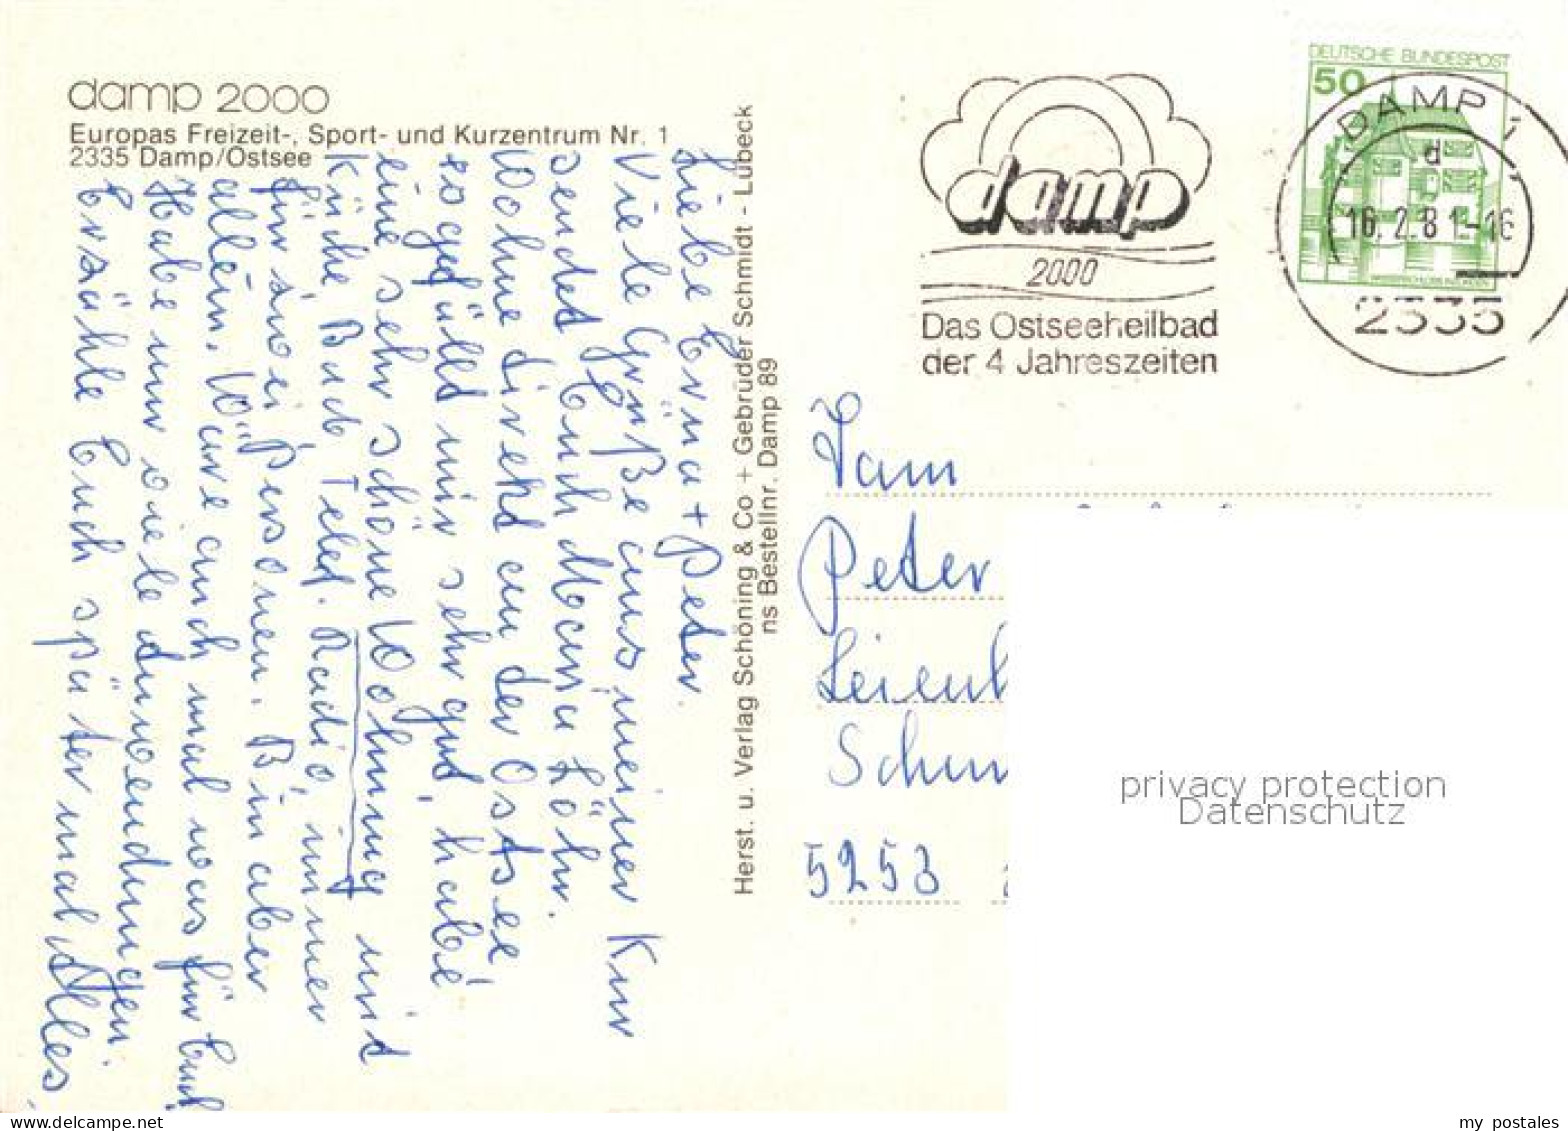 damp 2000
Europas Freizeit-, Sport- und Kurzentrum Nr. 1
2335 Damp/Ostsee
Liebe Erna + Peter.
Viele Grüße aus meiner Kur
sendet Euch Maria Löhr.
Wohne direkt an der Ostsee
es gefällt mir sehr gut, habe
eine sehr schöne Wohnung mit
Küche Bad Telef. Radio, immer
für zwei Personen. Bin aber
allein. Wäre auch mal was für Euch
Habe nur viele Anwendungen.
Erzähle Euch später mal Alles.
Herst. u. Verlag Schöning & Co + Gebrüder Schmidt - Lübeck
ns Bestellnr. Damp 89
damp
2000
Das Ostseeheilbad
der 4 Jahreszeiten
DEUTSCHE BUNDESPOST
50
DAMP 1
d
16.2.81-16
2335
Fam
Peter
5253
privacy protection
Datenschutz
my postales